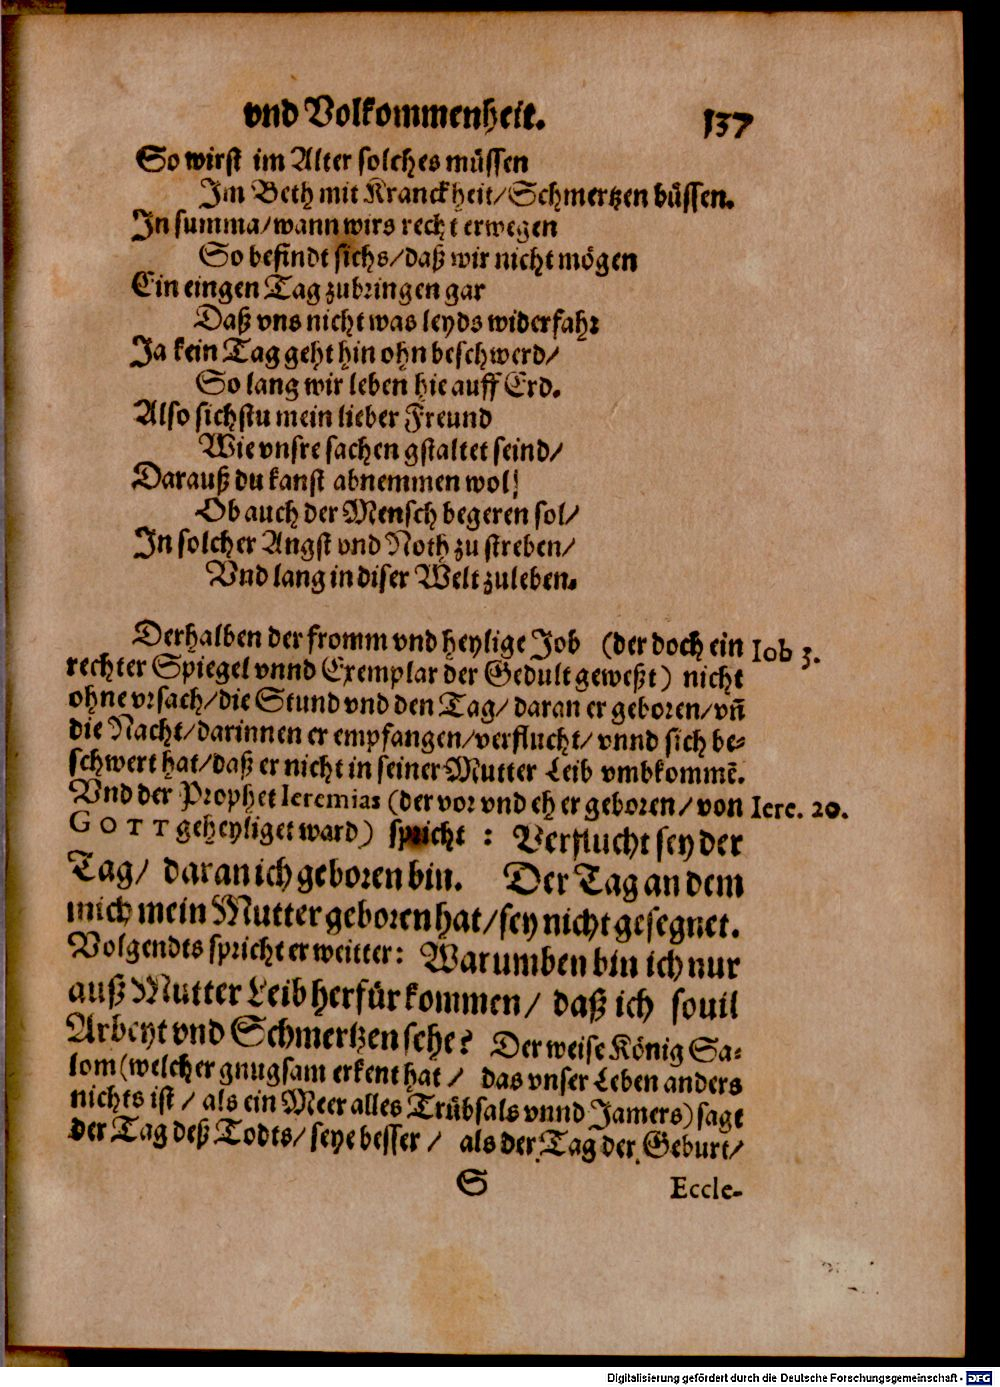 vnd Volkommenheit. 137
So wirst im Alter solches müssen
Im Beth mit Kranckheit/Schmertzen büssen.
In summa/wann wirs recht erwegen
So befindt sichs/daß wir nicht mögen
Ein eingen Tag zubringen gar
Daß vns nicht was leyds widerfahr
Ja kein Tag geht hin ohn beschwerd/
So lang wir leben hie auff Erd.
Also sichstu mein lieber Freund
Wie vnsre sachen gstaltet seind/
Darauß du kanst abnemmen wol/
Ob auch der Mensch begeren sol/
In solcher Angst vnd Noth zu streben/
Vnd lang in diser Welt zuleben.
Derhalben der fromm vnd heylige Job (der doch ein Iob 3.
rechter Spiegel vnnd Exemplar der Gedult geweßt) nicht
ohne vrsach/die Stund vnd den Tag/daran er geboren/vñ
die Nacht/darinnen er empfangen/verflucht/vnnd sich be-
schwert hat/daß er nicht in seiner Mutter Leib vmbkommē.
Vnd der Prophet Ieremias (der vor vnd eh er geboren/von Iere. 20.
GOTT geheyliget ward) spricht: Verflucht sey der
Tag/ daran ich geboren bin. Der Tag an dem
mich mein Mutter geboren hat/sey nicht gesegnet.
Volgendts spricht er weitter: Warumben bin ich nur
auß Mutter Leib herfür kommen/ daß ich souil
Arbeyt vnd Schmertzen sehe? Der weise König Sa-
lom(welcher gnugsam erkent hat/ das vnser Leben anders
nichts ist/als ein Meer alles Trübsals vnnd Jamers) sagt
der Tag deß Todts/seye besser/ als der Tag der Geburt/
S Eccle-
Digitalisierung gefördert durch die Deutsche Forschungsgemeinschaft - DFG